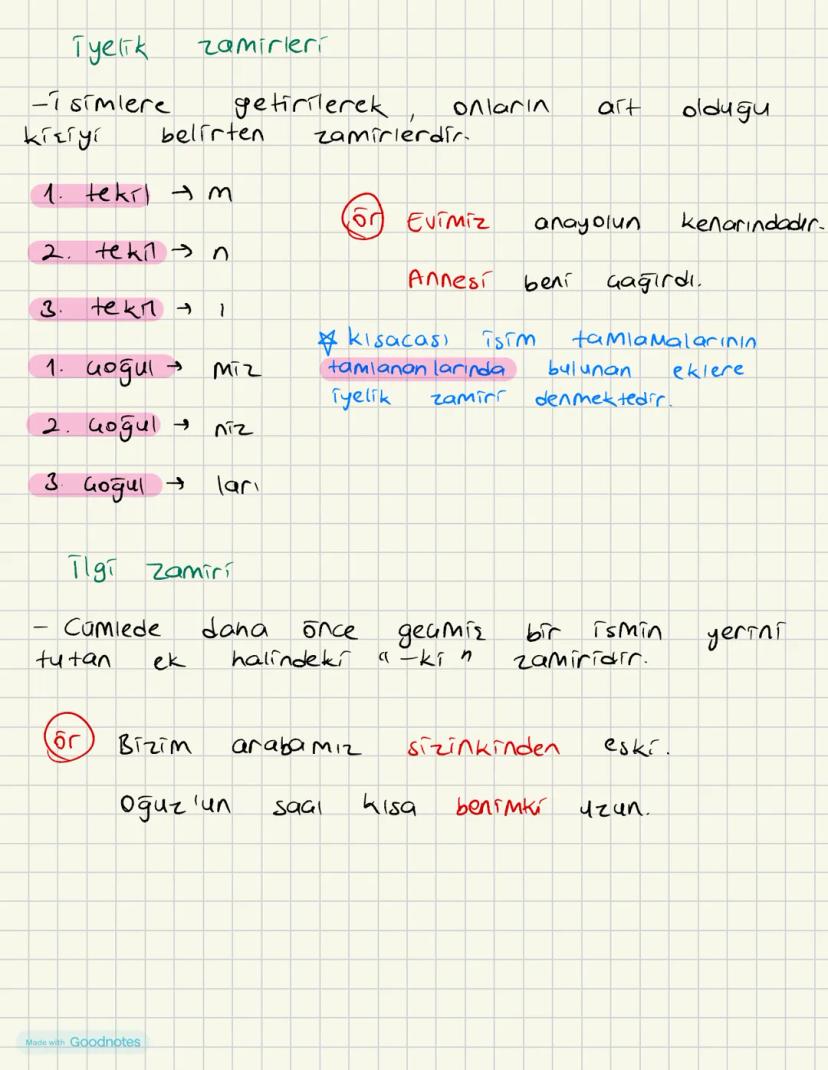 İyelik zamirleri
-İsimlere getirilerek, onların ait olduğu
kişiyi belirten zamirlerdir.
1. tekil → m
2. tekil → n
3. tekil → ı
1. çoğul → miz
2. çoğul → niz
3. çoğul → ları
ör Evimiz anayolun kenarındadır.
Annesi beni çağırdı.
☆ kısacası isim tamlamalarının
tamlananlarında bulunan eklere
iyelik zamiri denmektedir.
İlgi zamiri
- Cümlede daha önce geçmiş bir ismin yerini
tutan ek halindeki "-ki" zamiridir.
ör Bizim arabamız sizinkinden eski.
Oğuz'un saçı kısa benimki uzun.
Made with Goodnotes